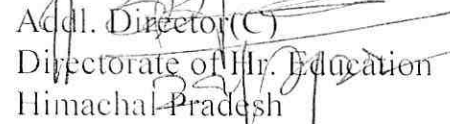 Addl. Director(C)
Directorate of Hr. Education
Himachal Pradesh